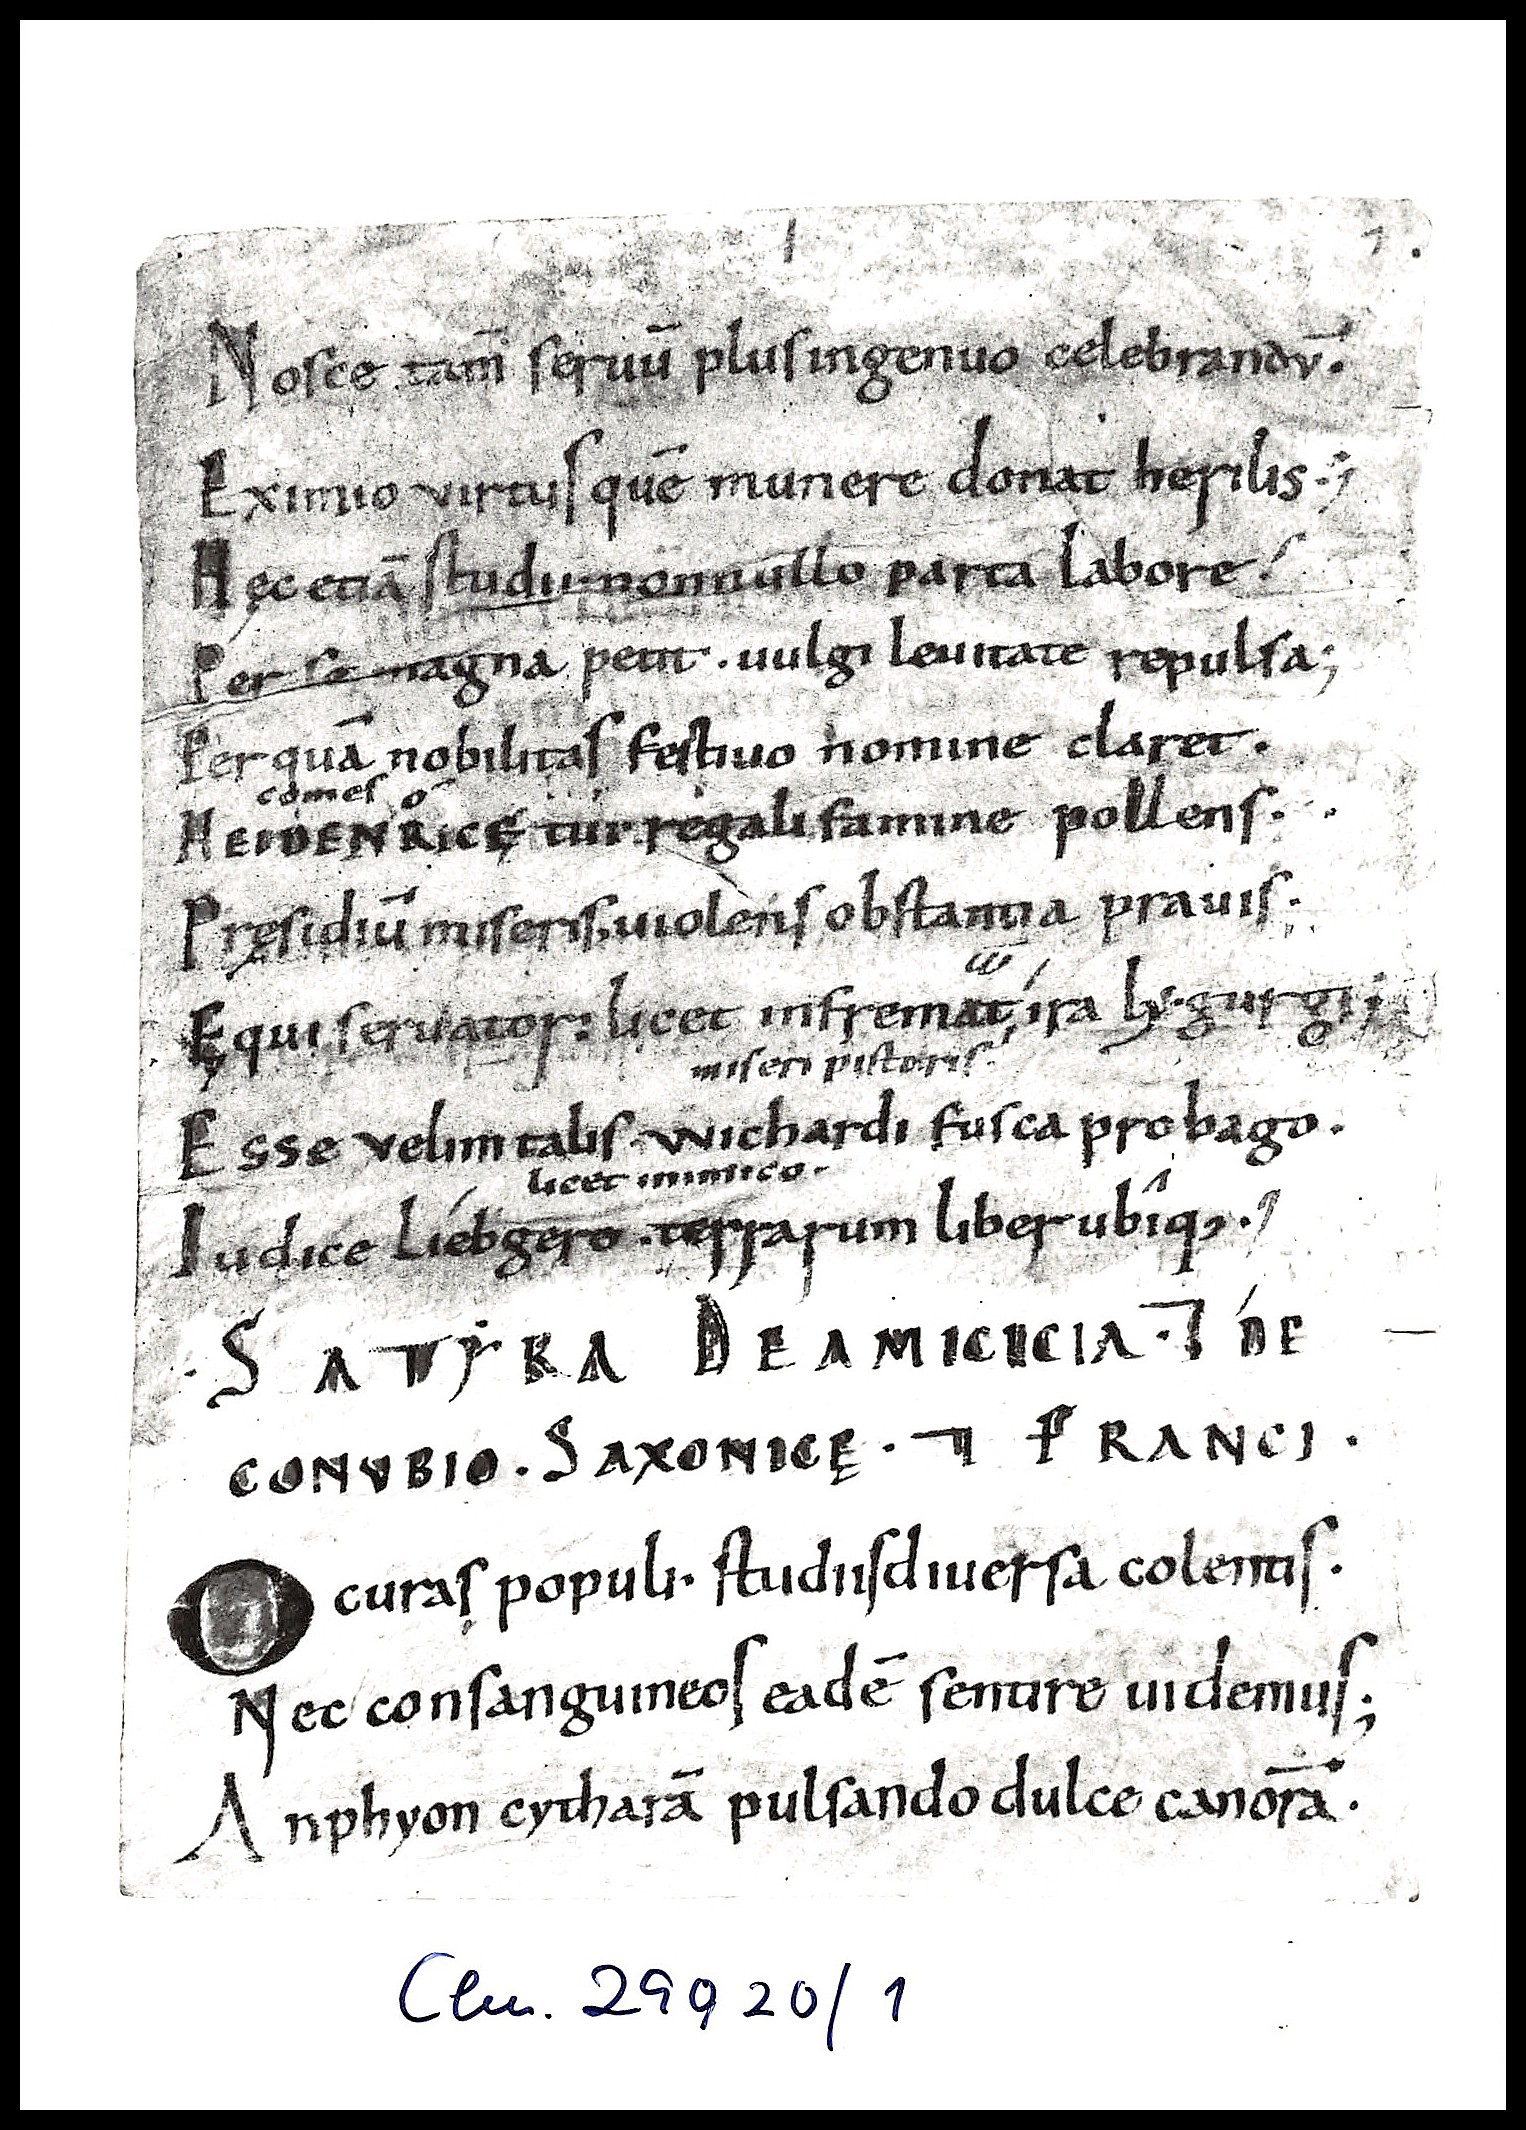 Nosce tam̅ seruu̅ plus ingenuo celebrandv̅.
Eximio virtus que̅ munere donat herilis.;
Hęc etia̅ studii nonnullo parta labore.
Per se magna petit. uulgi leuitate repulsa;
Per qua̅ nobilitas festiuo nomine claret.
comes o
HEIDENRICĘ tui regali famine pollens.
Pręsidiu̅ miseris. uiolens obstantia prauis.
Ęqui seruator: licet infremat ira lẏgurgi;
miseri pistoris.
Esse velim talis. Wichardi fusca probago.
licet inimico.
Iudice Liebgero. terrarum liber ubiq;.
. SATẎRA DE AMICICIA. ⁊ DE
CONVBIO. SAXONICĘ. ⁊ FRANCI.
O curas populi. studiis diuersa colentis.
Nec consanguineos eade̅ sentire uidemus;
Anphyon cythara̅ pulsando dulce canora̅.
Clm. 29920/1